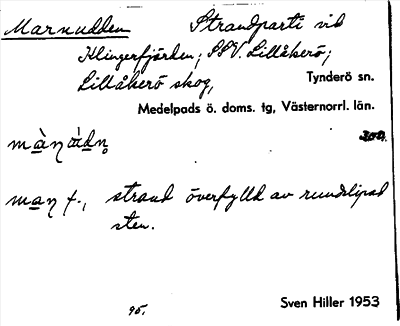 Marnudden Strandparti vid
Klingerfjärden; SSV. Lillåkerö;
Lillåkerö skog, Tynderö sn.
Medelpads ö. doms. tg, Västernorrl. län.
man f., strand överfylld av rundslipad
sten.
95. Sven Hiller 1953